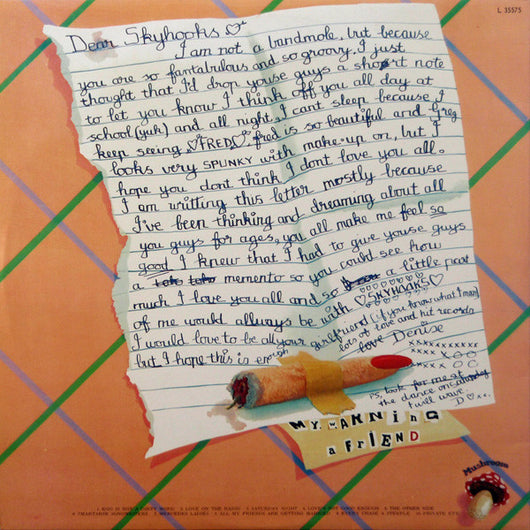 L 35575
Dear Skyhooks
I am not a bandmole, but because
you are so fantabulous and so groovy, I just
thought that I'd drop youse guys a short note
to let you know I think off you all day at
school (yuk) and all night, I cant sleep because I
keep seeing FRED, fred is so beautiful and Greg
looks very SPUNKY with make-up on, but I
hope you dont think I dont love you all.
I am writting this letter mostly because
I've been thinking and dreaming about all
you guys for ages, you all make me feel so
good I knew that I had to give youse guys
a memento so you could see how
much I love you all and so a little peice
of me would allways be with SKYHOOKS
I would love to be all your girlfriend (if you know what I mean)
but I hope this is enough lots of love and hit records
love Denise
xxxxxxxxxx
PS, look for me at
the dance on saturday
I will wave.
D
MY WARNiNG
a FRiEND
Mushroom